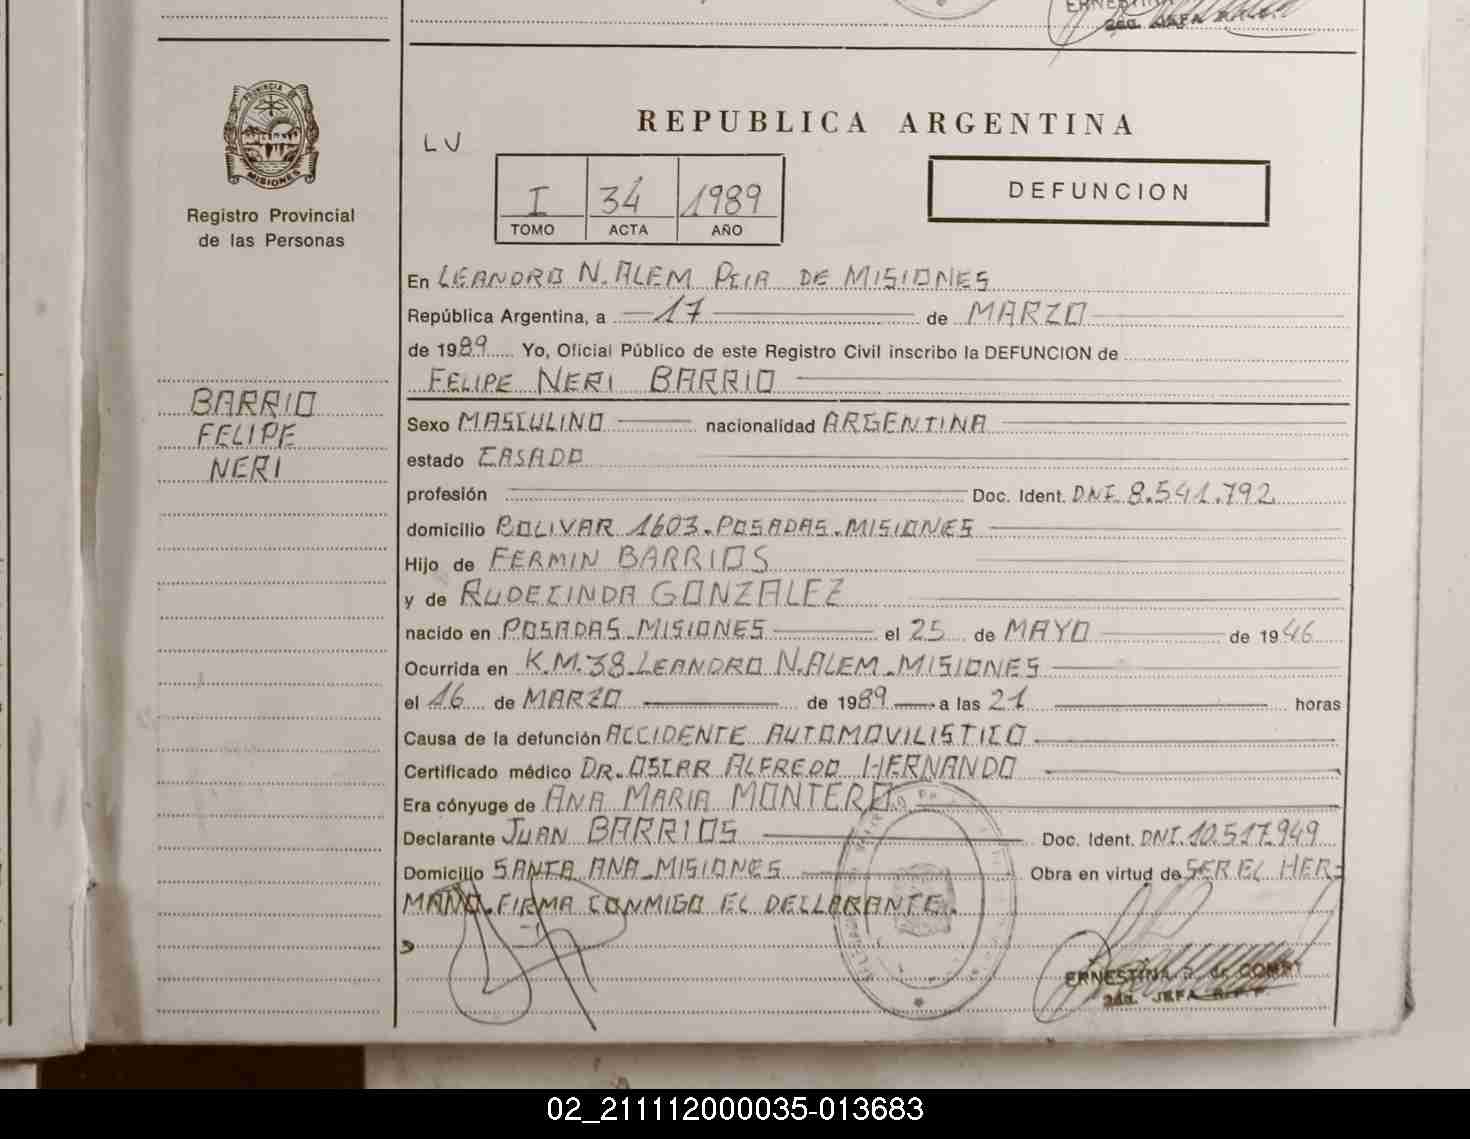 PROVINCIA DE
MISIONES
Registro Provincial
de las Personas
BARRIO
FELIPE
NERI
REPUBLICA ARGENTINA
LV
I 34 1989
TOMO ACTA AÑO
DEFUNCION
En LEANDRO N. ALEM PCIA DE MISIONES
República Argentina, a 17 de MARZO
de 1989 Yo, Oficial Público de este Registro Civil inscribo la DEFUNCION de
FELIPE NERI BARRIO
Sexo MASCULINO nacionalidad ARGENTINA
estado CASADO
profesión Doc. Ident. DNI. 8.541.792
domicilio BOLIVAR 1603. POSADAS. MISIONES
Hijo de FERMIN BARRIOS
y de RUDECINDA GONZALEZ
nacido en POSADAS. MISIONES el 25 de MAYO de 1946
Ocurrida en K.M. 38. LEANDRO N. ALEM. MISIONES
el 16 de MARZO de 1989 a las 21 horas
Causa de la defunción ACCIDENTE AUTOMOVILISTICO
Certificado médico DR. OSCAR ALFREDO HERNANDO
Era cónyuge de ANA MARIA MONTERO
Declarante JUAN BARRIOS Doc. Ident. DNI. 10.517.949
Domicilio SANTA ANA. MISIONES Obra en virtud de SER EL HER=
MANO. FIRMA CONMIGO EL DECLARANTE.
ERNESTINA
2da. JEFA
02_211112000035-013683